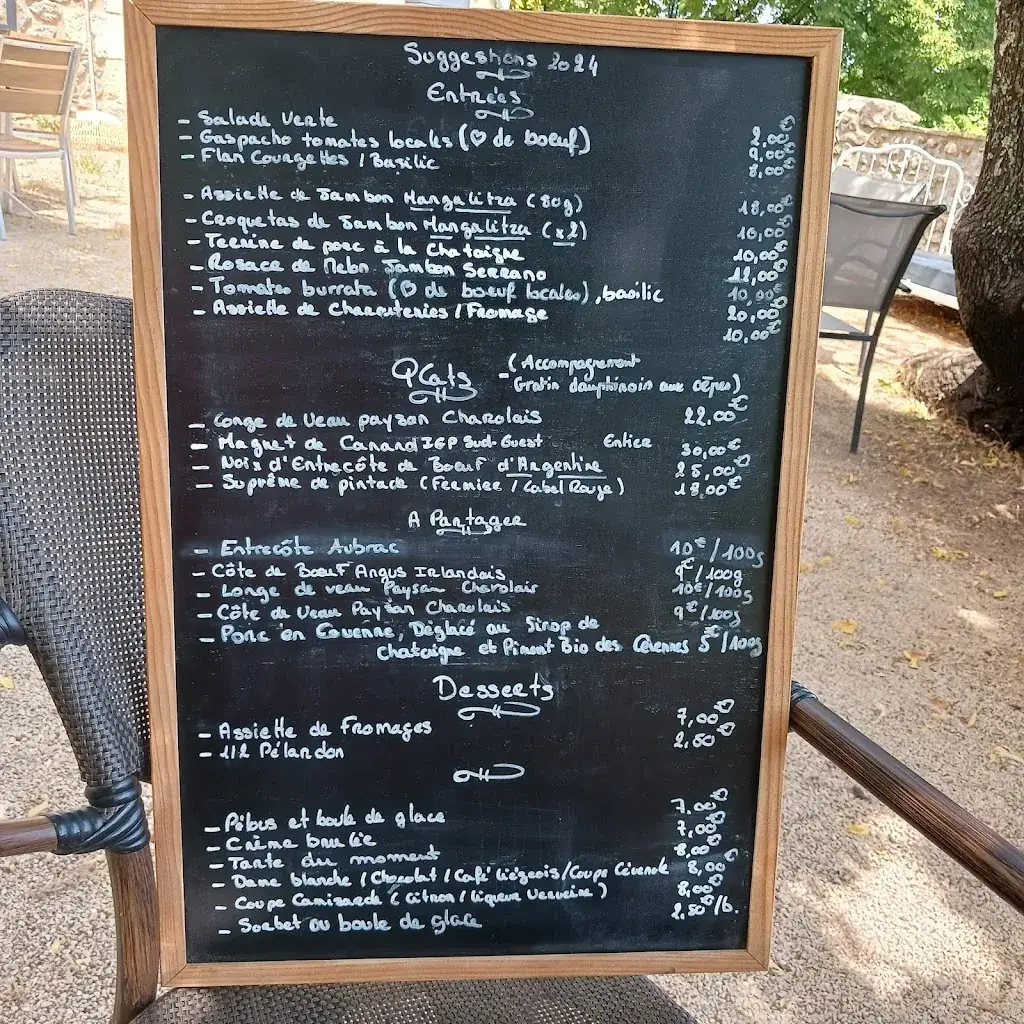 Suggestions 2024
Entrées
- Salade verte 2,00€
- Gaspacho tomates locales (♡ de boeuf) 9,00€
- Flan Courgettes / Basilic 8,00€
- Assiette de Jambon Mangalitza (80g) 18,00€
- Croquetas de Jambon Mangalitza (x2) 10,00€
- Terrine de porc à la Chataigne 10,00€
- Rosace de Melon Jambon Serrano
- Tomates burrata (♡ de boeuf locales), basilic 10,00€
- Assiette de Charcuteries / Fromage 20,00€
10,00€
Plats - (Accompagnement
Gratin dauphinois aux cèpes)
- Longe de Veau paysan Charolais 22.00€
- Magret de Canard IGP Sud-Ouest Entier 30,00€
- Noix d'Entrecôte de Boeuf d'Argentine 25,00€
- Suprême de pintade (Fermier / Label Rouge) 18.00€
A Partager
- Entrecôte Aubrac 10€/100g
- Côte de Boeuf Angus Irlandais 9€/100g
- Longe de veau Paysan Charolais 10€/100g
- Côte de Veau Paysan Charolais 9€/100g
- Porc en Couenne, Déglacé au Sirop de
Chataigne et Piment Bio des Cévennes 5€/100g
Desserts
- Assiette de Fromages 7,00€
- 1/2 Pélardon 2,50€
- Pébus et boule de glace 7,00€
- Crème brulée 7,00€
- Tarte du moment 8,00€
- Dame blanche / Chocolat / Café liégeois / Coupe Cévenole 8,00€
- Coupe Camisarde (citron / liqueur Verveine) 8,00€
- Sorbet ou boule de glace 2,50€/b.